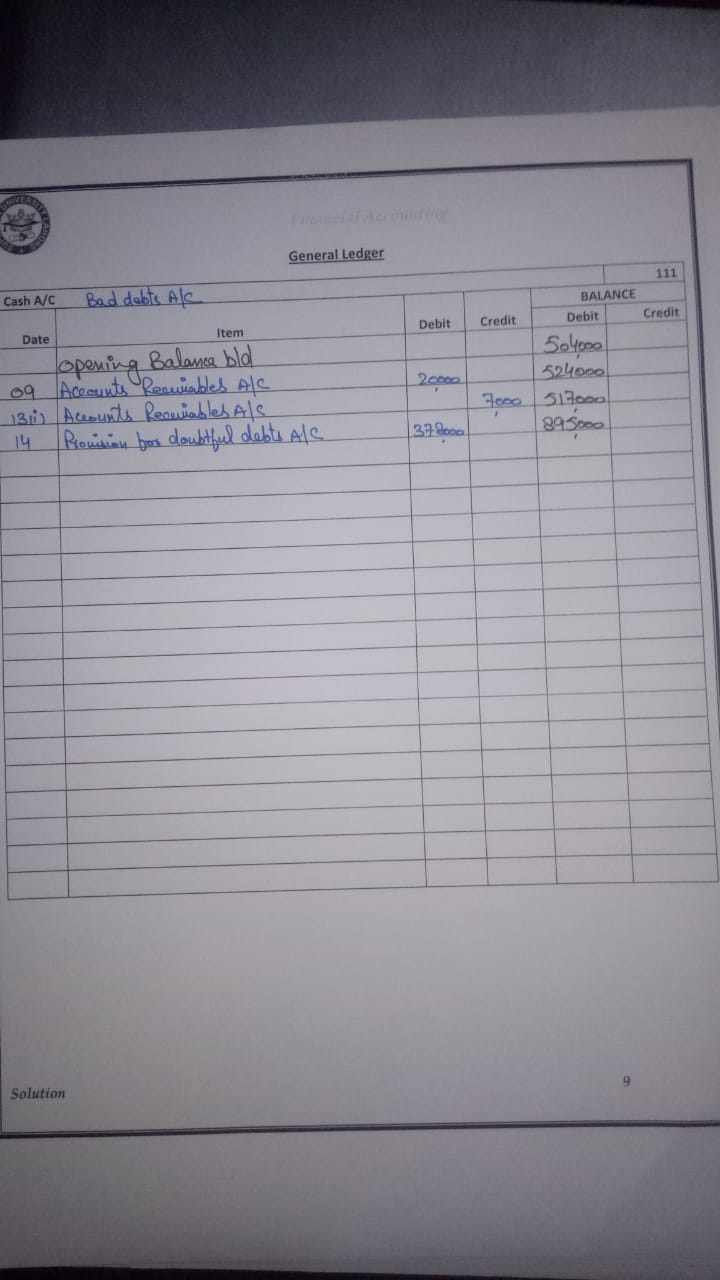 UNIVERSITY LAHORE
Financial Accounting
General Ledger
111
Cash A/C Bad debts A/C
BALANCE
Date Item Debit Credit Debit Credit
Opening Balance b/d 504,000
09 Accounts Receivables A/C 20,000 524,000
13(i) Accounts Receivables A/C 7,000 517,000
14 Provision for doubtful debts A/C 378,000 895,000
Solution 9